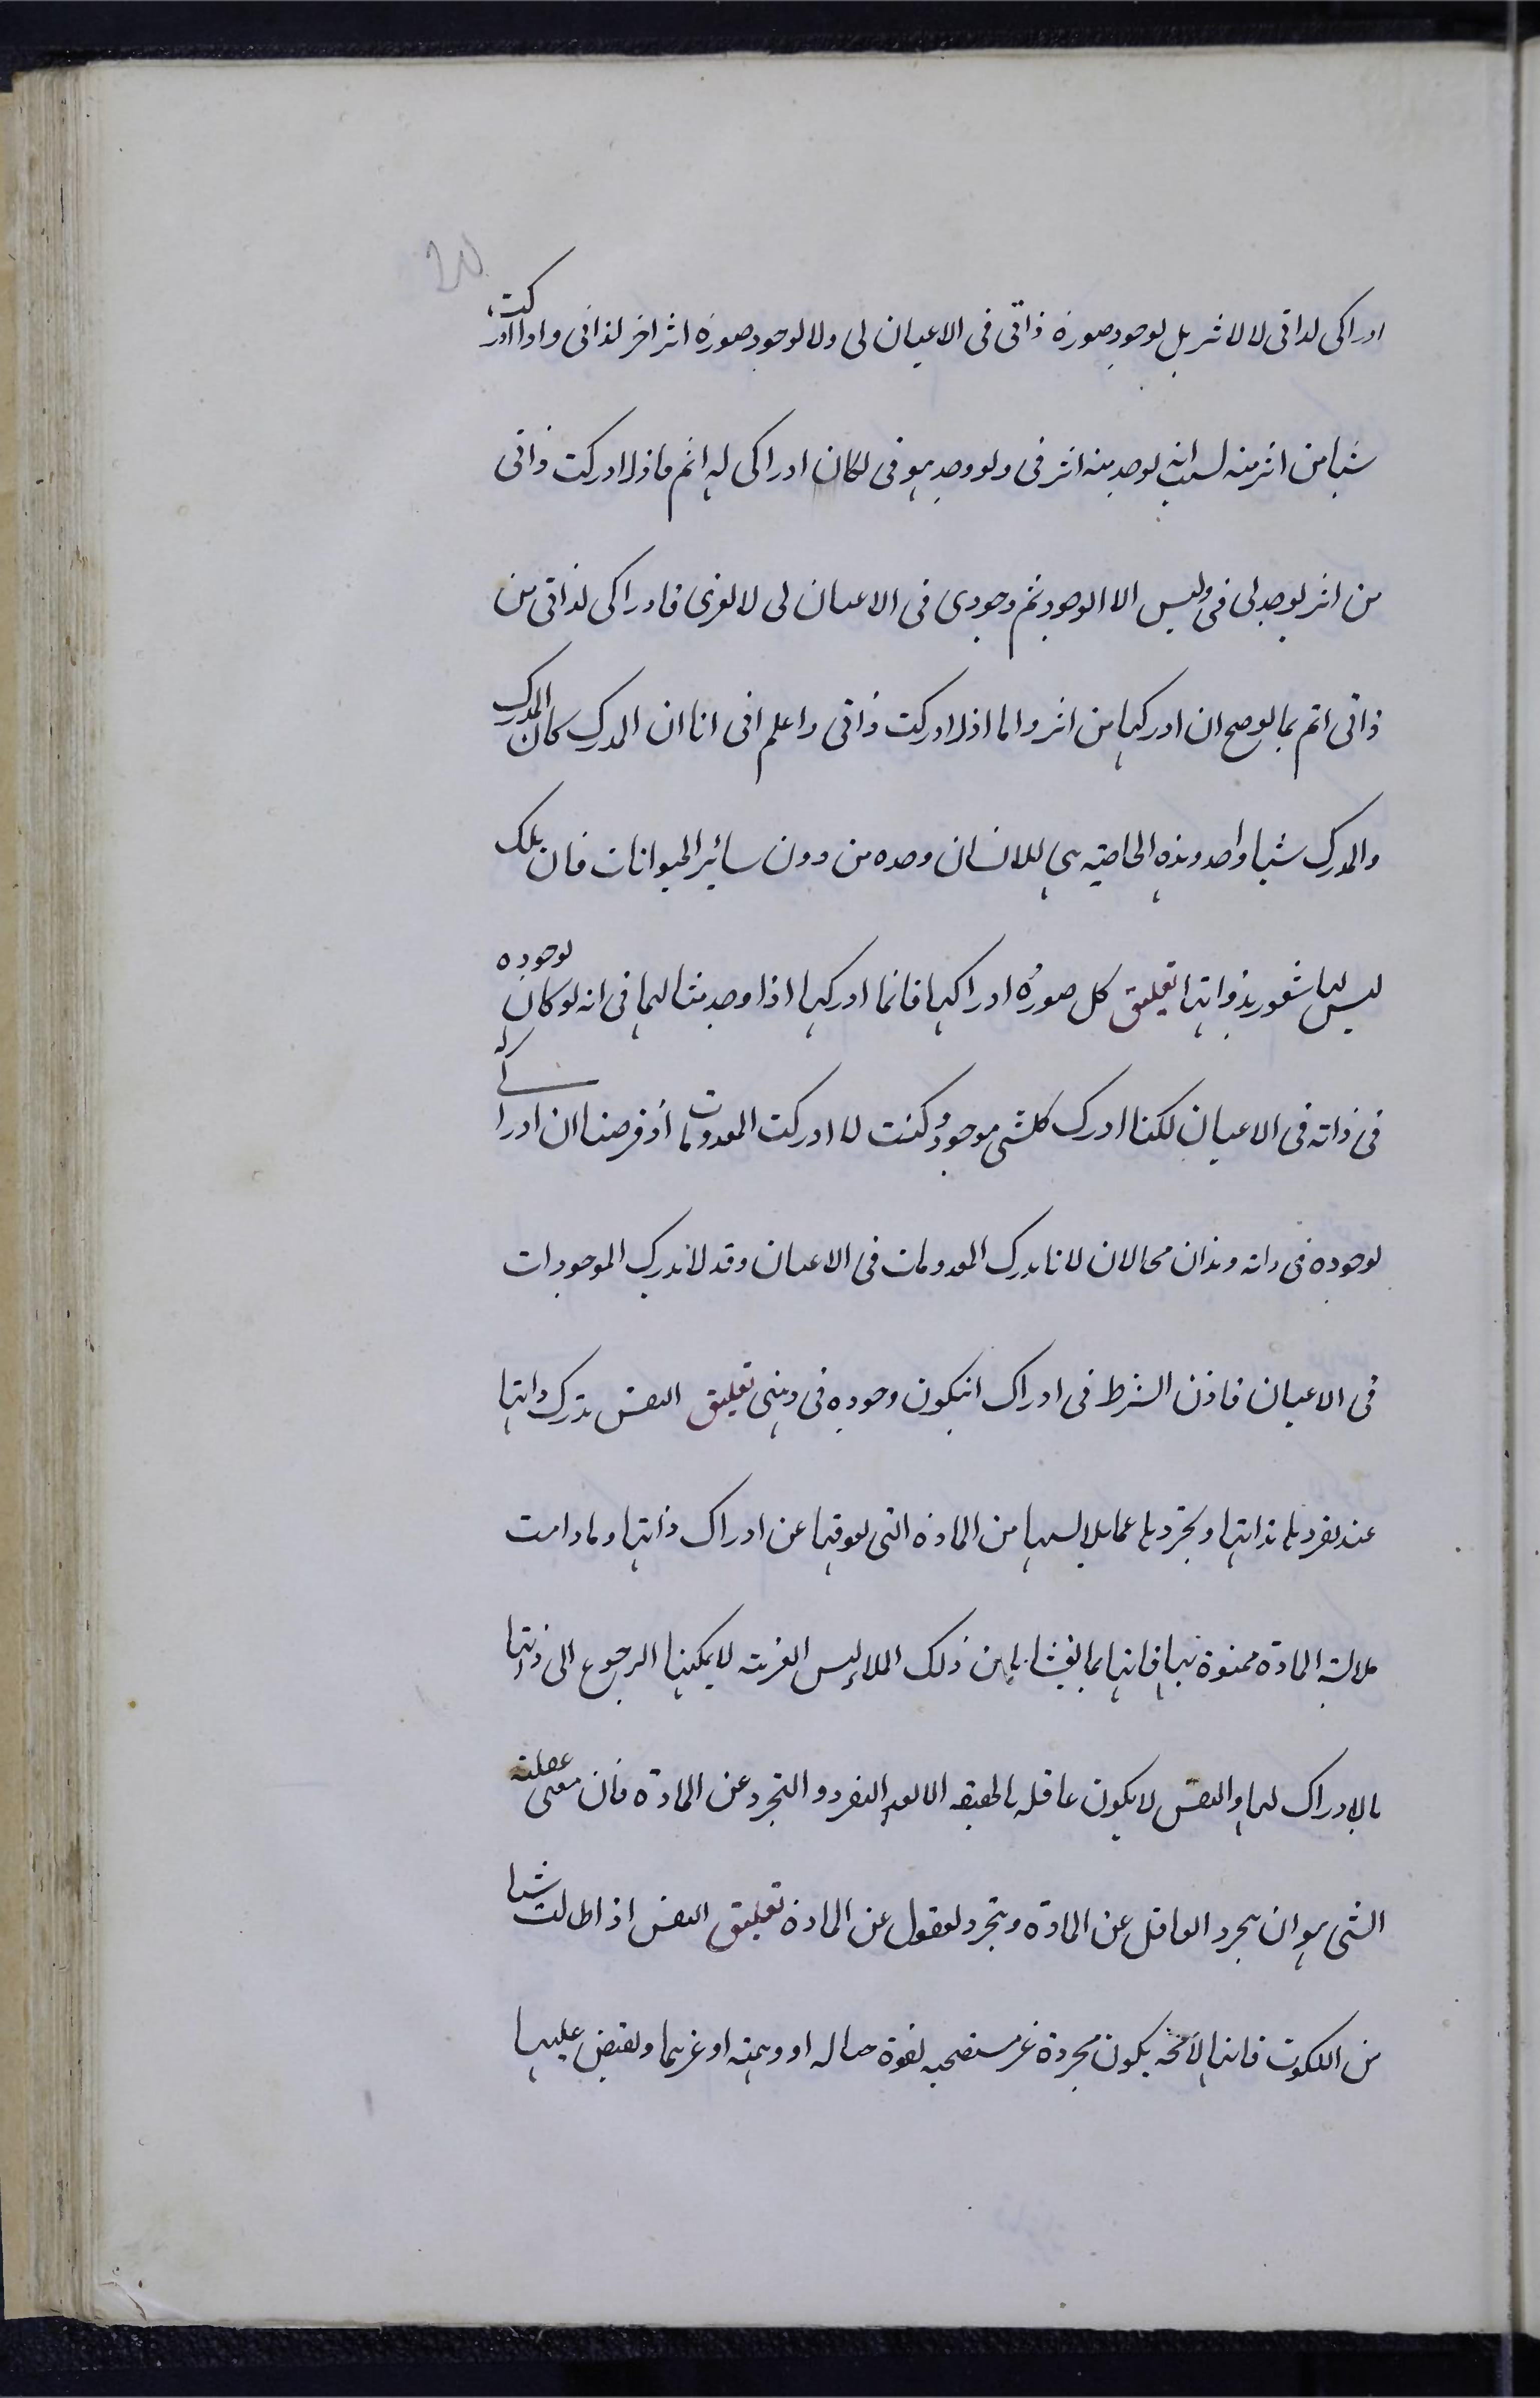 ادراكى لذاتى لا لاثر بل لوجود صورة ذاتى فى الاعيان لى ولا لوجود صورة اثر اخر لذاتى واذا ادركت
شيا من اثر منه لسبب انه يوجد منه اثر فى ولو وجد هو فى لكان ادراكى له اتم فاذا ادركت ذاتى
من اثر يوجد لى فى وليس الا الوجود ثم وجودى فى الاعيان لى لا لغرى فادراكى لذاتى من
ذاتى اتم مما يوضح ان ادركها من اثر واما اذا ادركت ذاتى واعلم انى انا ان المدرك كان المدرك
والمدرك شيا واحد وهذه الخاصية هى للانسان وحده من دون سائر الحيوانات فان تلك
ليس لها شعور بذواتها تعليق كل صورة ادراكها فانما ادركها اذا وجد مثالها فى انه لو كان لوجوده
فى ذاته فى الاعيان لكنا ادرك كلشى موجود وكنت لا ادركت المعدومات اذ فرضنا ان ادراكى له
لوجوده فى ذاته وهذان محالان لانا ندرك المعدومات فى الاعيان وقد لا ندرك الموجودات
فى الاعيان فاذن الشرط فى ادراك انيكون وجوده فى ذهنى تعليق النفس تدرك ذاتها
عند تفردها بذاتها وتجردها عما يلابسها من المادة التى تعوقها عن ادراك ذاتها وما دامت
ملابسة المادة ممنوة بها فانها بما يغشاها من ذلك الملابس الغريبة لا يمكنها الرجوع الى ذاتها
بالادراك لها والنفس لا يكون عاقله بالحقيقه الا بعد التفرد والتجرد عن المادة فان معنى عقليته
الشى هو ان يتجرد العاقل عن المادة وتجرد لمعقول عن المادة تعليق النفس اذا طالعت شيا
من الملكوت فانها لا محه يكون مجردة غير مستصحبه لقوة خياليه او وهميه او غرهما ويفيض عليها